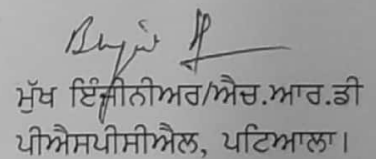 ਮੁੱਖ ਇੰਜੀਨੀਅਰ/ਐਚ.ਆਰ.ਡੀ
ਪੀਐਸਪੀਸੀਐਲ, ਪਟਿਆਲਾ।